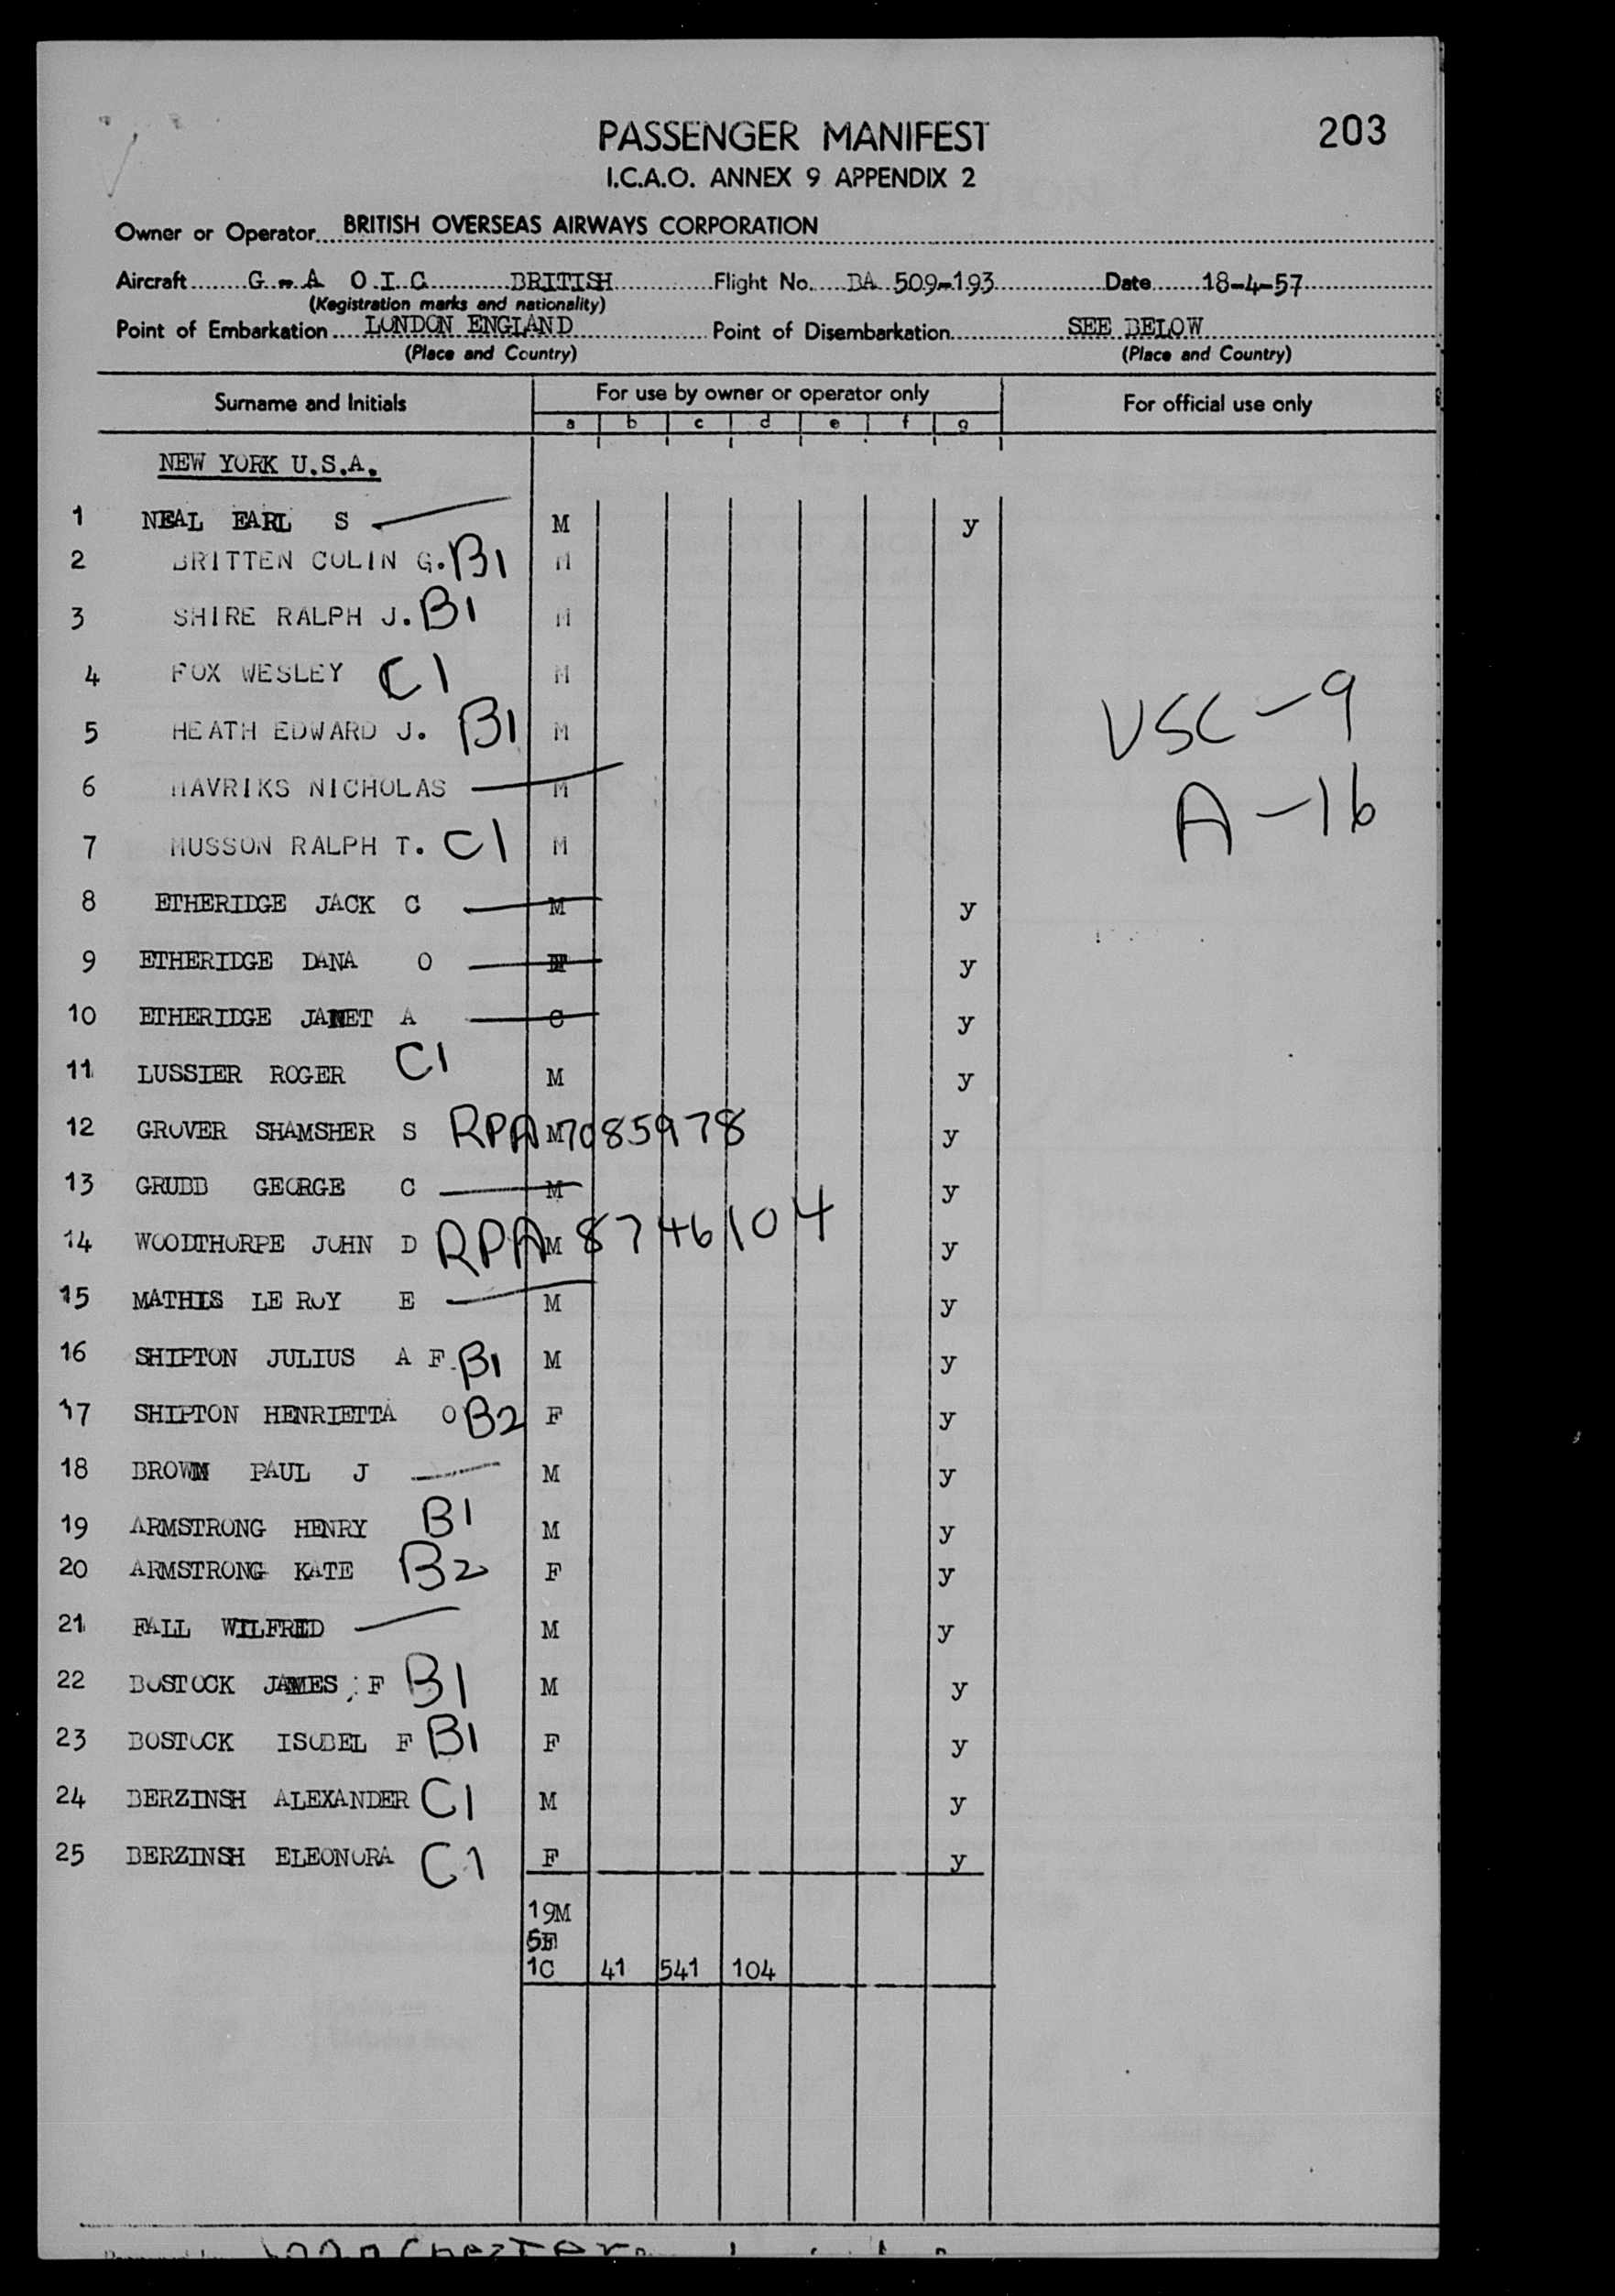 203
PASSENGER MANIFEST
I.C.A.O. ANNEX 9 APPENDIX 2
Owner or Operator BRITISH OVERSEAS AIRWAYS CORPORATION
Aircraft G-A O I C BRITISH Flight No. BA 509-193 Date 18-4-57
(Registration marks and nationality)
Point of Embarkation LONDON ENGLAND Point of Disembarkation SEE BELOW
(Place and Country) (Place and Country)
Surname and Initials For use by owner or operator only For official use only
a b c d e f g
NEW YORK U.S.A.
1 NEAL EARL S M y
2 BRITTEN COLIN G. B1 M
3 SHIRE RALPH J. B1 M
4 FOX WESLEY C1 M
5 HEATH EDWARD J. B1 M
USC-9
6 MAVRIKS NICHOLAS M
A-16
7 MUSSON RALPH T. C1 M
8 ETHERIDGE JACK C M y
9 ETHERIDGE DANA O F y
10 ETHERIDGE JANET A C y
11 LUSSIER ROGER C1 M y
12 GROVER SHAMSHER S RPA M 7085978 y
13 GRUBB GEORGE C M y
14 WOODTHORPE JOHN D RPA M 8746104 y
15 MATHIS LE ROY E M y
16 SHIPTON JULIUS A F B1 M y
17 SHIPTON HENRIETTA O B2 F y
18 BROWN PAUL J M y
19 ARMSTRONG HENRY B1 M y
20 ARMSTRONG KATE B2 F y
21 FALL WILFRED M y
22 BOSTOCK JAMES F B1 M y
23 BOSTOCK ISOBEL F B1 F y
24 BERZINSH ALEXANDER C1 M y
25 BERZINSH ELEONORA C1 F y
19M
5F
1C 41 541 104